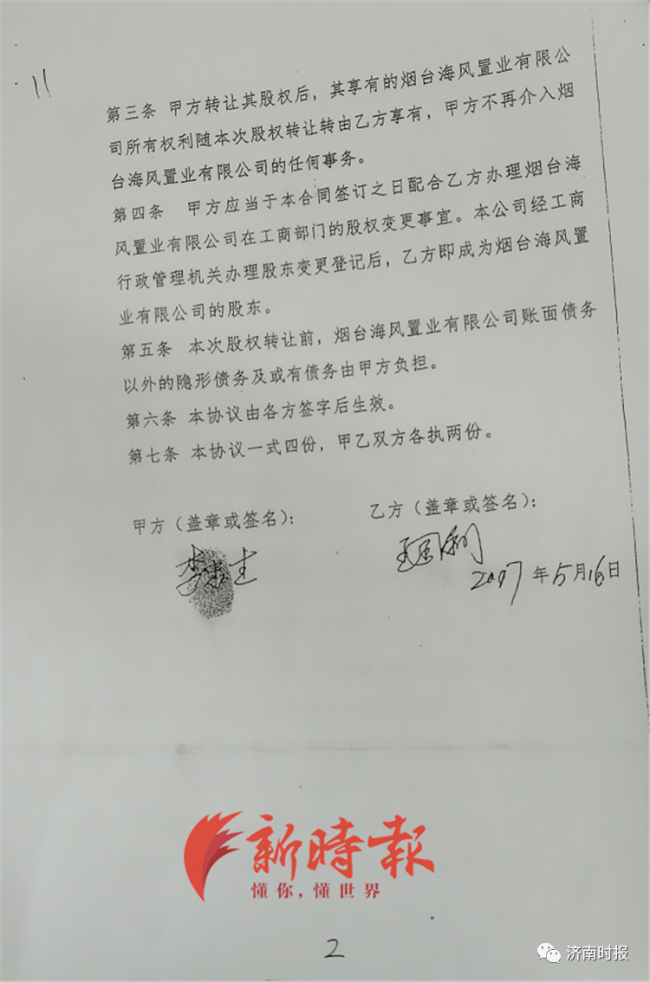 11
第三条 甲方转让其股权后，其享有的烟台海风置业有限公
司所有权利随本次股权转让转由乙方享有，甲方不再介入烟
台海风置业有限公司的任何事务。
第四条 甲方应当于本合同签订之日配合乙方办理烟台海
风置业有限公司在工商部门的股权变更事宜。本公司经工商
行政管理机关办理股东变更登记后，乙方即成为烟台海风置
业有限公司的股东。
第五条 本次股权转让前，烟台海风置业有限公司账面债务
以外的隐形债务及或有债务由甲方负担。
第六条 本协议由各方签字后生效。
第七条 本协议一式四份，甲乙双方各执两份。
甲方（盖章或签名）：
乙方（盖章或签名）：
2007年5月16日
新時報
懂你，懂世界
2
济南时报